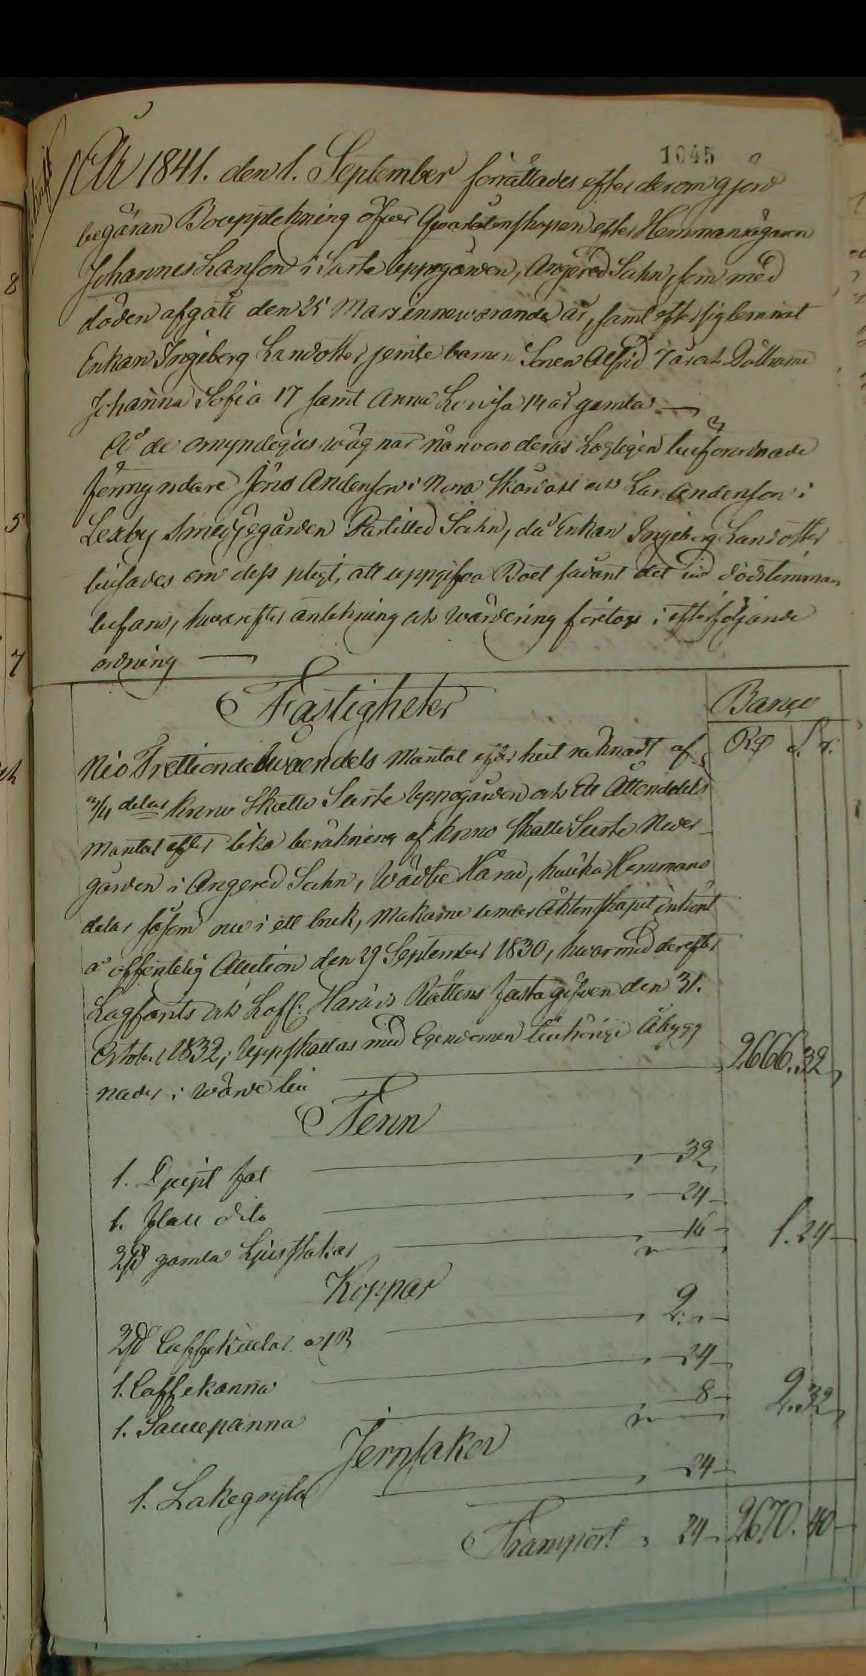 1045
År 1841. den 1. September förrättades efter derom gjord
begäran Boupptekning öfver Qvarlåtenskapen efter Hemmansägaren
Johannes Larsson i Surte Uppegården, Angered Sokn, som med
döden afgått den 25 Mars innewarande år, samt efter sig lemnat
Enkan Ingeborg Larsdotter jemte barnen Sonen Alfrid 7 år och Döttrarne
Johanna Sofia 17 samt Anna Lovisa 14 år gamla
På de omyndigas wägnar närvoro deras Lagligen
förmyndare Jöns Anderson i Norra och Lars Anderson i
Lexby Smedjegården Partilled Sokn, då Enkan Ingeborg Larsdotter
om dess pligt, att uppgifva Boet sådant det wid dödstimman
befans, hwarefter antekning och wärdering företogs i efterföljande
ordning
Fastigheter
Banco
Rd s. r.
Nio Trettiondetwåendels Mantal efter helt räknadt af
delar krono Skatte Surte Uppegården och Ett Åttondedels
Mantal efter lika beräkning af krono Skatte Surte Neder
gården i Angered Sokn, Wädtle Härad, hwilka Hemmans
delar såsom nu i ett bruk, Makarne under Äktenskapet inköpt
å offentelig Auction den 29 September 1830, hwarmed derefter
Lagfarits och Lofl. Härads Rättens fasta gifven den 31.
October 1832, Uppskattas med Egendomen tillhörige Åbygg
nader i wärde till 2666.32
Tenn
1. Djupt fat 32
1. flatt dito 24
2 st gamla Ljusstakar 16 1.24
Koppar
2 st Caffekittlar 2
1. Caffekanna 24
1. Saucepanna 8 2.32
Jernsaker
1. Lakegryta 24
Transport 24 2670.40